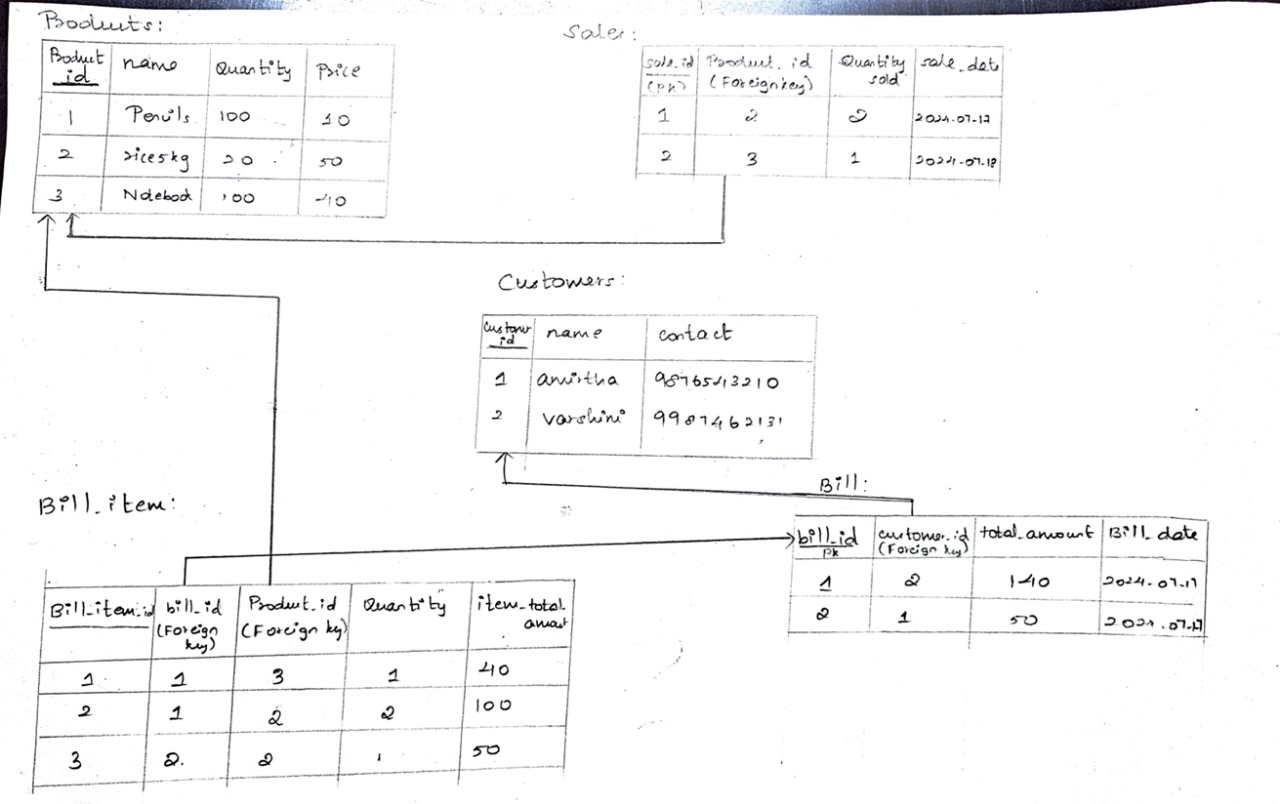 Products:
Product id name Quantity Price
1 Pencils 100 10
2 rice5kg 20 50
3 Notebook 100 40
Sales:
sale_id (pk) Product_id (Foreign key) Quantity sold sale_date
1 2 2 2024-07-17
2 3 1 2024-07-18
Customers:
Customer id name contact
1 amirtha 9876543210
2 varshini 9987462131
Bill:
bill_id pk customer_id (Foreign key) total_amount Bill_date
1 2 140 2024-07-17
2 1 50 2024-07-17
Bill_item:
Bill_item_id bill_id (Foreign key) Product_id (Foreign key) Quantity item_total_amount
1 1 3 1 40
2 1 2 2 100
3 2 2 1 50